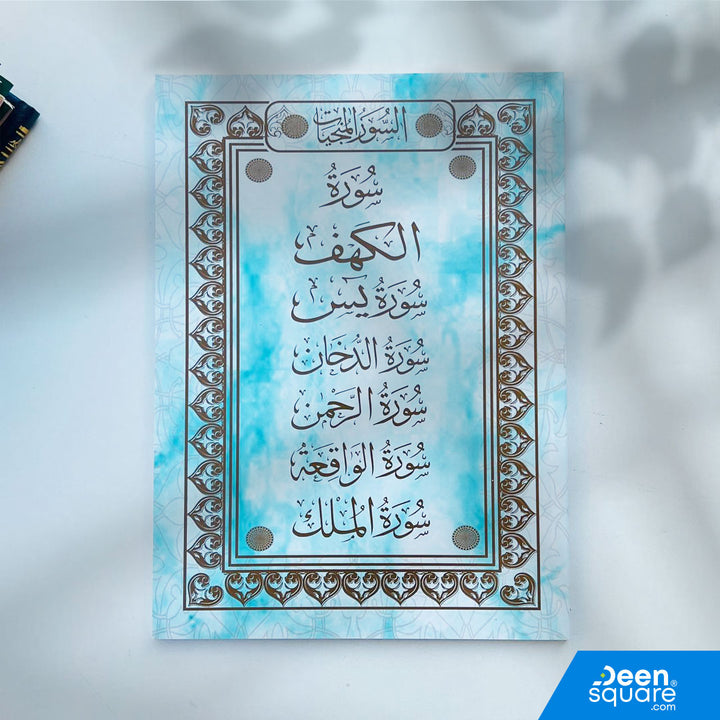 السُّوَرُ المُنْجِيَات
سُورَةُ
الكهف
سُورَةُ يس
سُورَةُ الدُّخَان
سُورَةُ الرَّحْمن
سُورَةُ الوَاقِعَة
سُورَةُ المُلْك
Deen®
square
.com